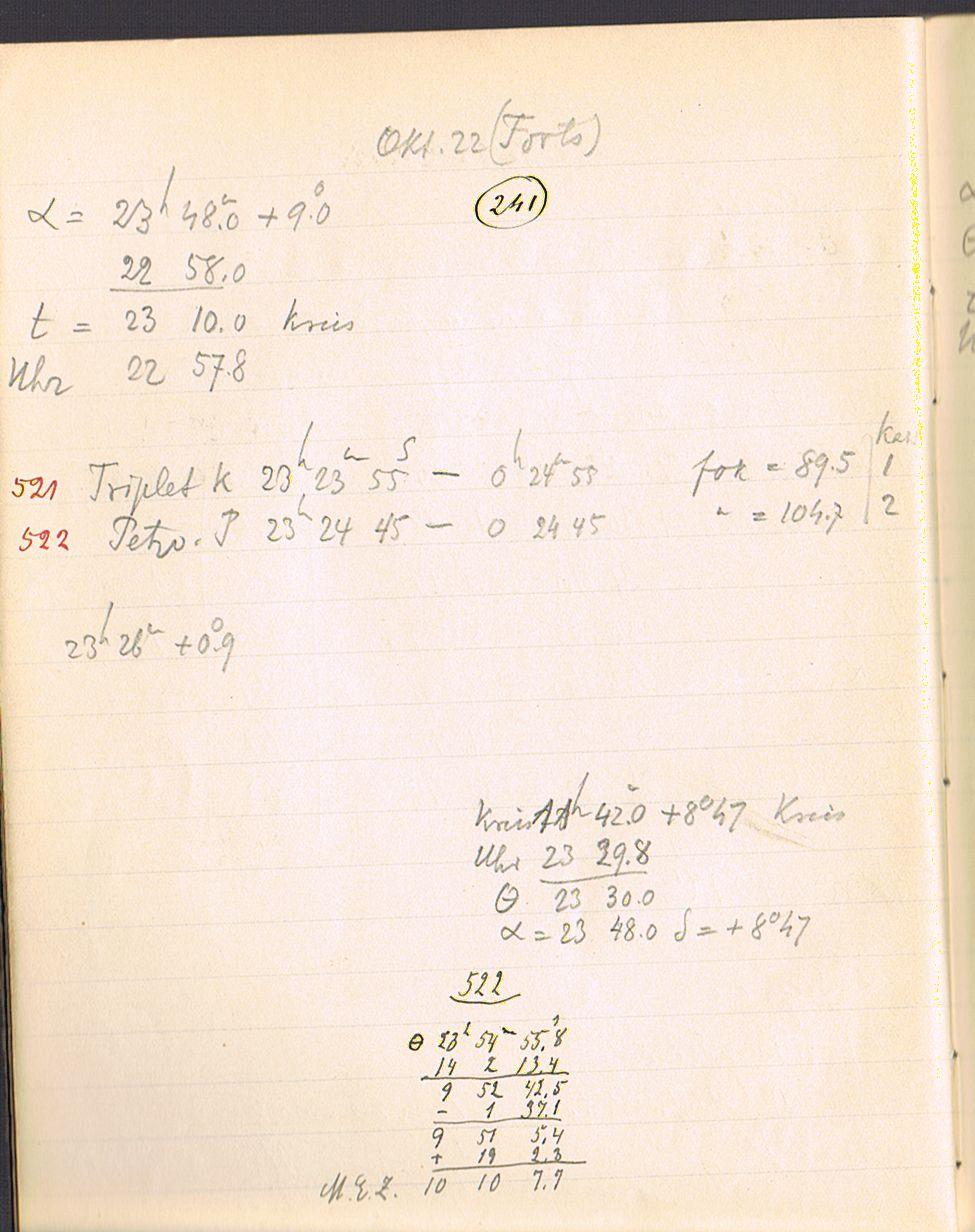 Okt. 22 (Forts)
241
α = 23h 48m.0 + 9°.0
22 58.0
t = 23 10.0 Kreis
Uhr 22 57.8
521 Triplet K 23h 23m 55s — 0h 24m 55 fok = 89.5 1
522 Petzv. P 23h 24 45 — 0 24 45 " = 104.7 2
23h 26m + 0°.9
Kreis 42.0 + 8°47 Kreis
Uhr 23 29.8
Θ 23 30.0
α = 23 48.0 δ = + 8°47
522
Θ 23h 54m 55s.8
14 2 13.4
9 52 42.5
- 1 37.1
9 51 5.4
+ 19 2.3
M.E.Z. 10 10 7.7